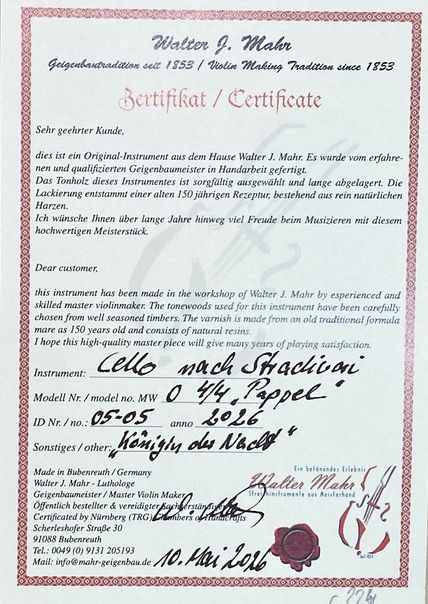 Walter J. Mahr
Geigenbautradition seit 1853 / Violin Making Tradition since 1853
Zertifikat / Certificate
Sehr geehrter Kunde,
dies ist ein Original-Instrument aus dem Hause Walter J. Mahr. Es wurde vom erfahre-
nen und qualifizierten Geigenbaumeister in Handarbeit gefertigt.
Das Tonholz dieses Instrumentes ist sorgfältig ausgewählt und lange abgelagert. Die
Lackierung entstammt einer alten 150 jährigen Rezeptur, bestehend aus rein natürlichen
Harzen.
Ich wünsche Ihnen über lange Jahre hinweg viel Freude beim Musizieren mit diesem
hochwertigen Meisterstück.
Dear customer,
this instrument has been made in the workshop of Walter J. Mahr by experienced and
skilled master violinmaker. The tonewoods used for this instrument have been carefully
chosen from well seasoned timbers. The varnish is made from an old traditional formula
mare as 150 years old and consists of natural resins.
I hope this high-quality master piece will give many years of playing satisfaction.
Instrument: Cello nach Stradivari
Modell Nr. / model no. MW 0 4/4 „Pappel"
ID Nr. / no.: 05-05 anno 2026
Sonstiges / other: „Königin der Nacht"
Made in Bubenreuth / Germany
Walter J. Mahr - Luthologe
Geigenbaumeister / Master Violin Maker
Öffentlich bestellter & vereidigter Sachverständiger
Certificated by Nürnberg (TRG) Chambers of Handcrafts
Scherleshofer Straße 30
91088 Bubenreuth
Tel.: 0049 (0) 9131 205193
Mail: info@mahr-geigenbau.de
10. Mai 2026
Ein betönendes Erlebnis
Walter Mahr
Streichinstrumente aus Meisterhand
Seit 1853